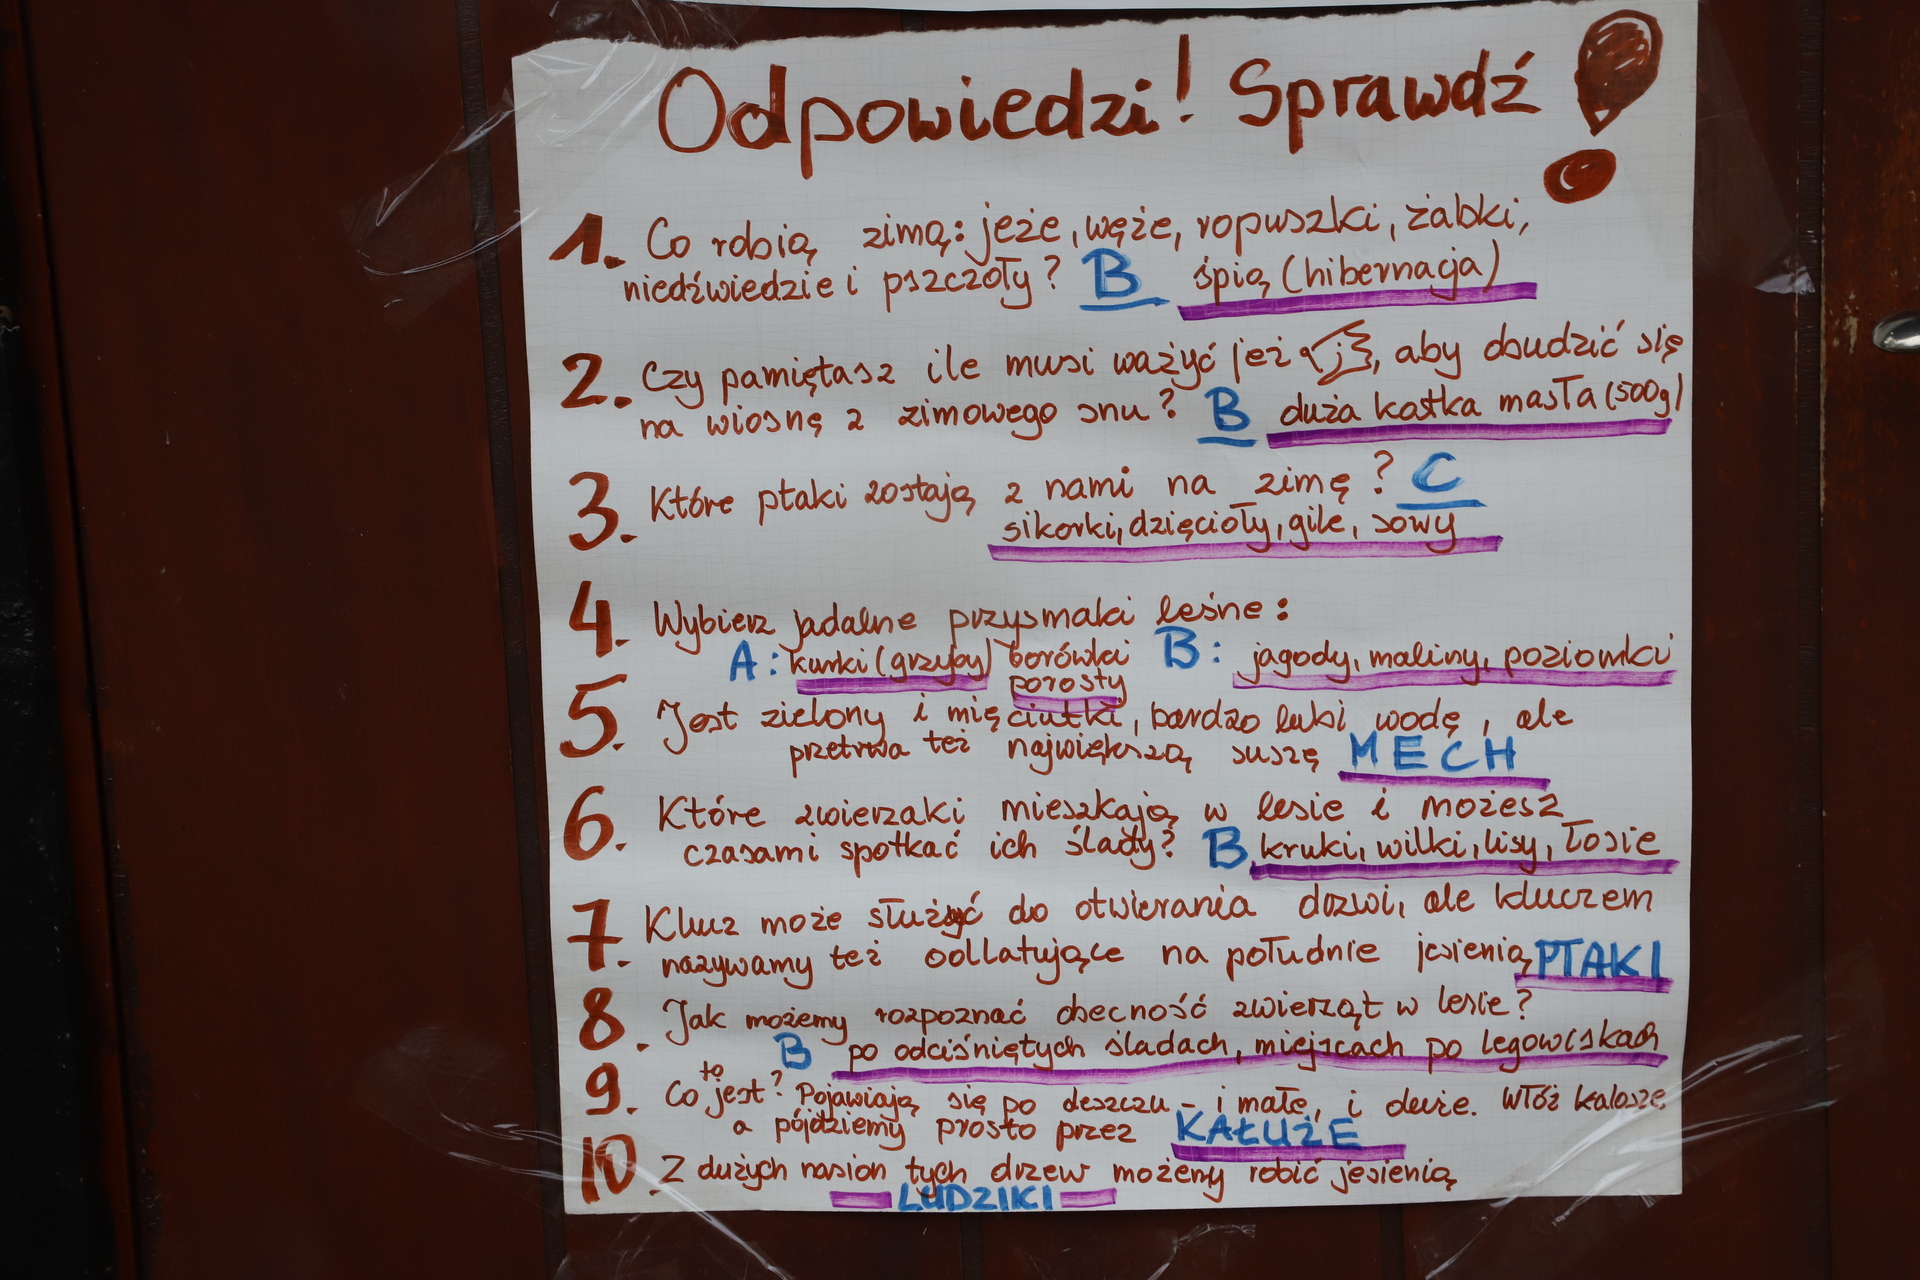 Odpowiedzi! Sprawdź!
1. Co robią zimą: jeże, węże, ropuszki, żabki,
niedźwiedzie i pszczoły? B śpią (hibernacja)
2. Czy pamiętasz ile musi ważyć jeż, aby obudzić się
na wiosnę z zimowego snu? B duża kostka masła (500g)
3. Które ptaki zostają z nami na zimę? C
sikorki, dzięcioły, gile, sowy
4. Wybierz jadalne przysmaki leśne:
A: kurki (grzyby) borówki B: jagody, maliny, poziomki
porosty
5. Jest zielony i mięciutki, bardzo lubi wodę, ale
przetrwa też największą suszę MECH
6. Które zwierzaki mieszkają w lesie i możesz
czasami spotkać ich ślady? B kruki, wilki, lisy, łosie
7. Klucz może służyć do otwierania drzwi, ale kluczem
nazywamy też odlatujące na południe jesienią PTAKI
8. Jak możemy rozpoznać obecność zwierząt w lesie?
B po odciśniętych śladach, miejscach po legowiskach
9. Co to jest? Pojawiają się po deszczu - i małe, i duże. Włóż kalosze
a pójdziemy prosto przez KAŁUŻE
10. Z dużych nasion tych drzew możemy robić jesienią
LUDZIKI